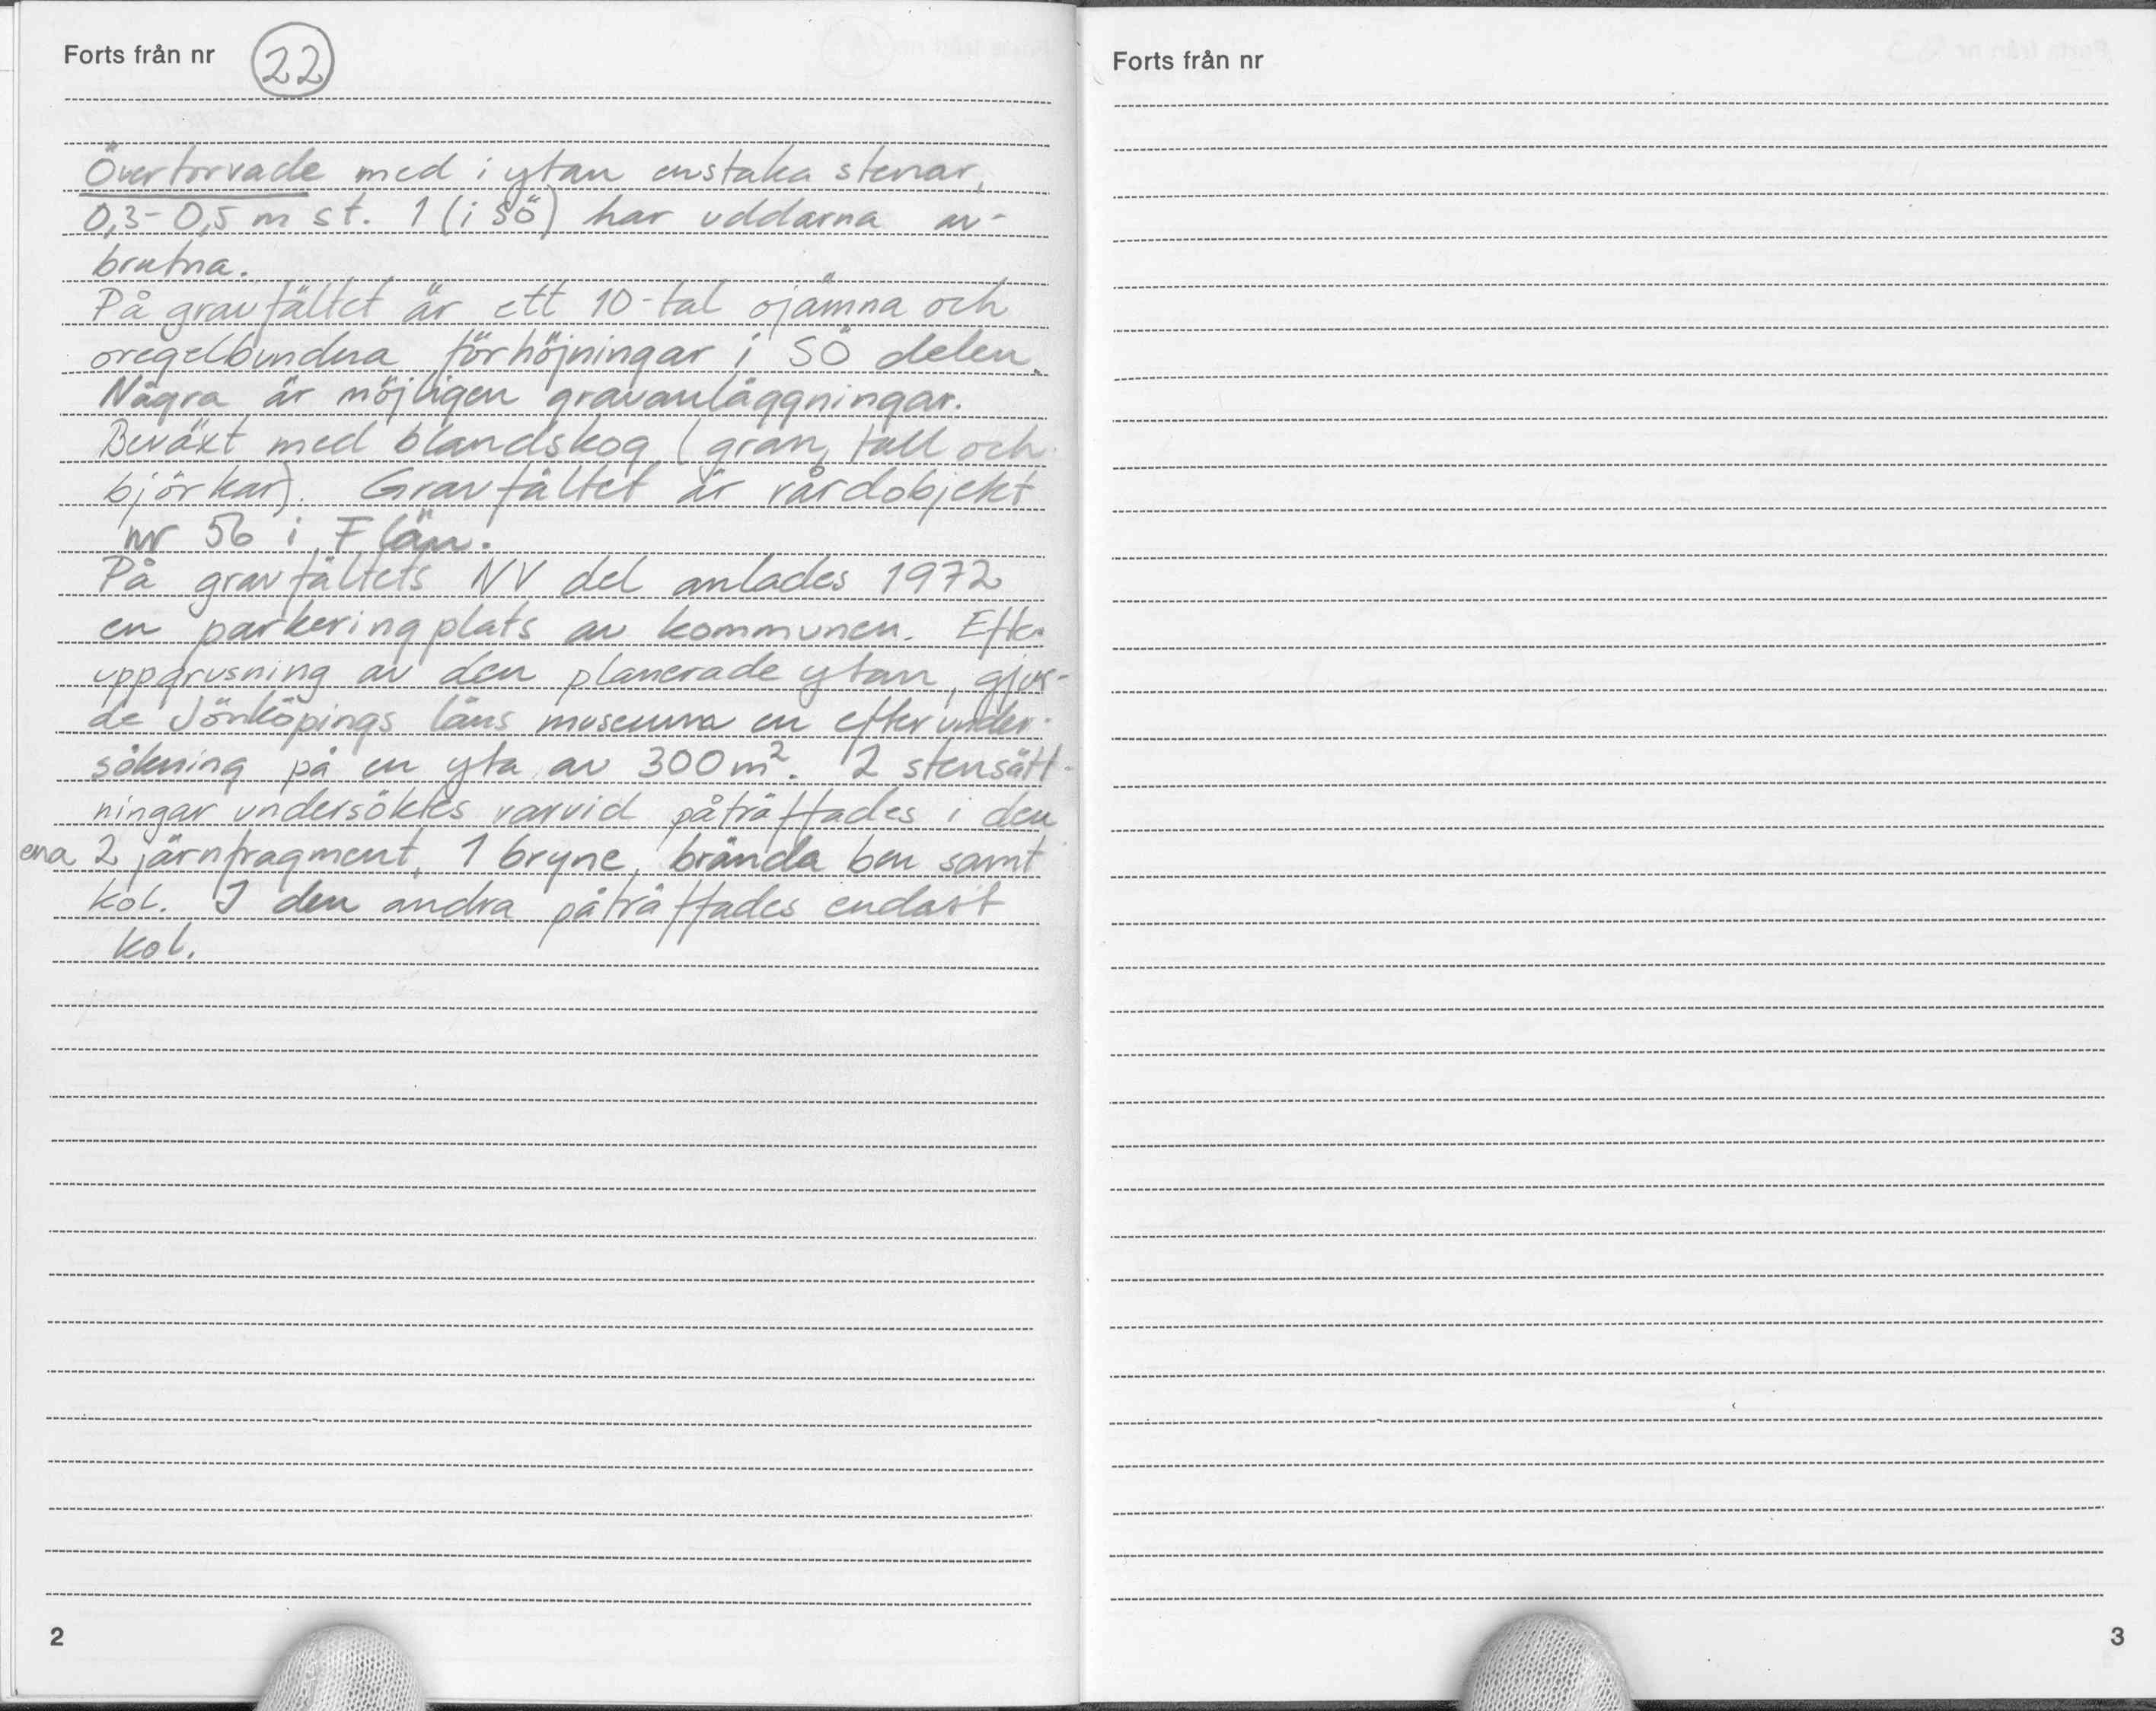 Forts från nr 22
Övertorvade med i ytan enstaka stenar,
0,3-0,5 m st. 1 (i SÖ) har uddarna av-
brutna.
På gravfältet är ett 10-tal ojämna och
oregelbundna förhöjningar i SÖ delen.
Några är möjligen gravanläggningar.
Beväxt med blandskog (gran, tall och
björkar). Gravfältet är vårdobjekt
nr 56 i F län.
På gravfältets NV del anlades 1972
en parkeringplats av kommunen. Efter
uppgrusning av den planerade ytan, gjor-
de Jönköpings läns museum en efterunder-
sökning på en yta av 300 m². 2 stensätt-
ningar undersöktes varvid påträffades i den
ena 2 järnfragment, 1 bryne, brända ben samt
kol. I den andra påträffades endast
kol.
2
Forts från nr
3